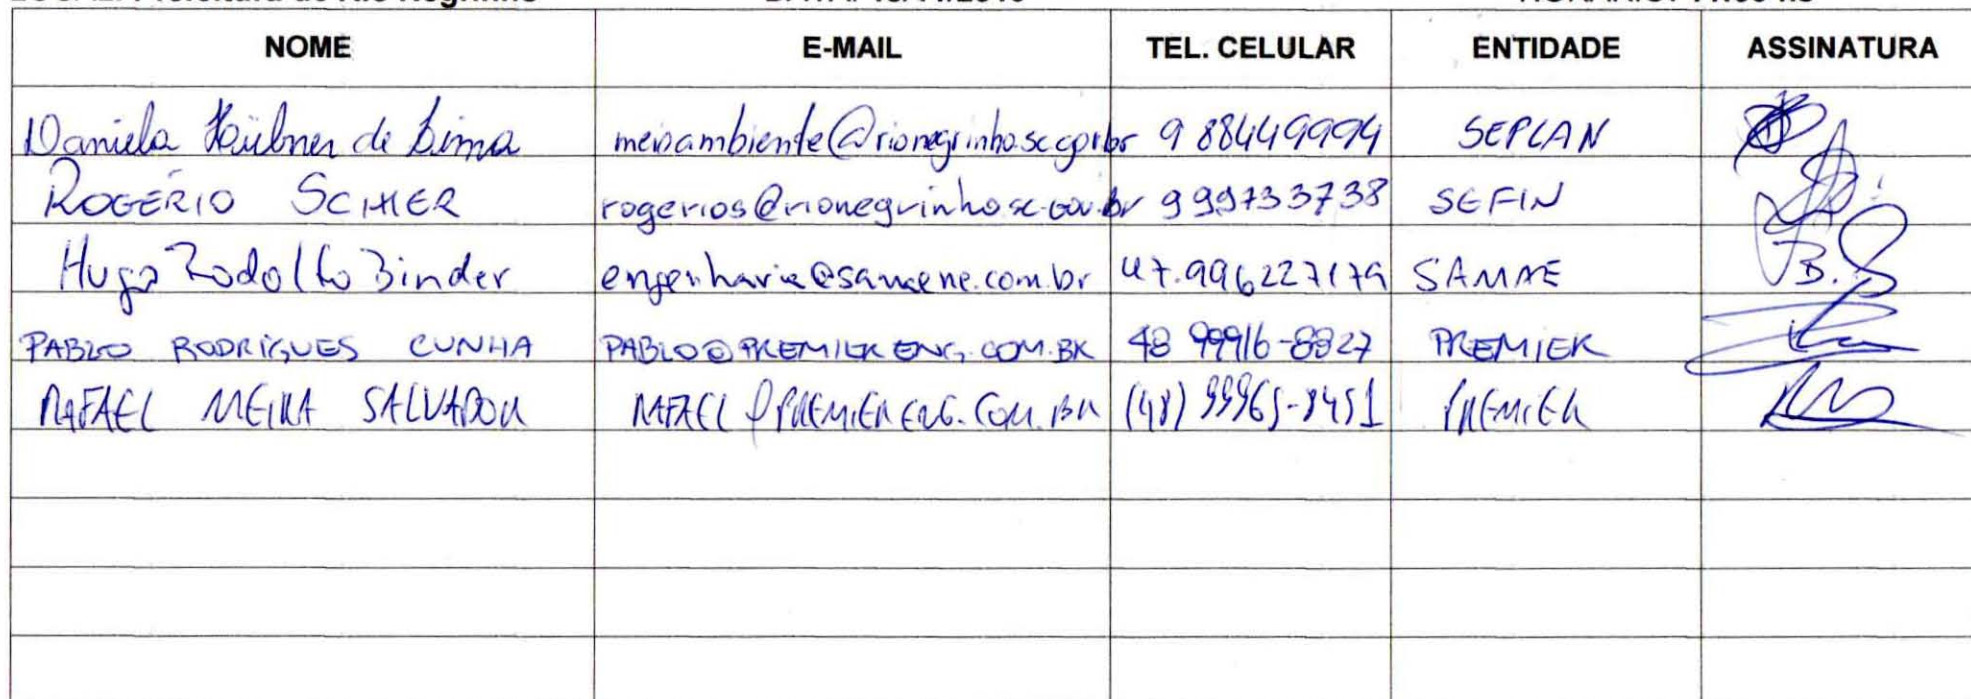 Prefeitura de Rio Negrinho
NOME E-MAIL TEL. CELULAR ENTIDADE ASSINATURA
Daniela Hübner de Lima meioambiente@rionegrinho.sc.gov.br 9 88449994 SEPLAN
ROGÉRIO SCHIER rogerios@rionegrinho.sc.gov.br 999733738 SEFIN
Hugo Rodolfo Binder engenharia@samaene.com.br 47.996227179 SAMAE B.
PABLO RODRIGUES CUNHA PABLO@PREMIERENG.COM.BR 48 99916-8827 PREMIER
RAFAEL MEIRA SALVADOR RAFAEL@PREMIERENG.COM.BR (48) 99965-8451 PREMIER